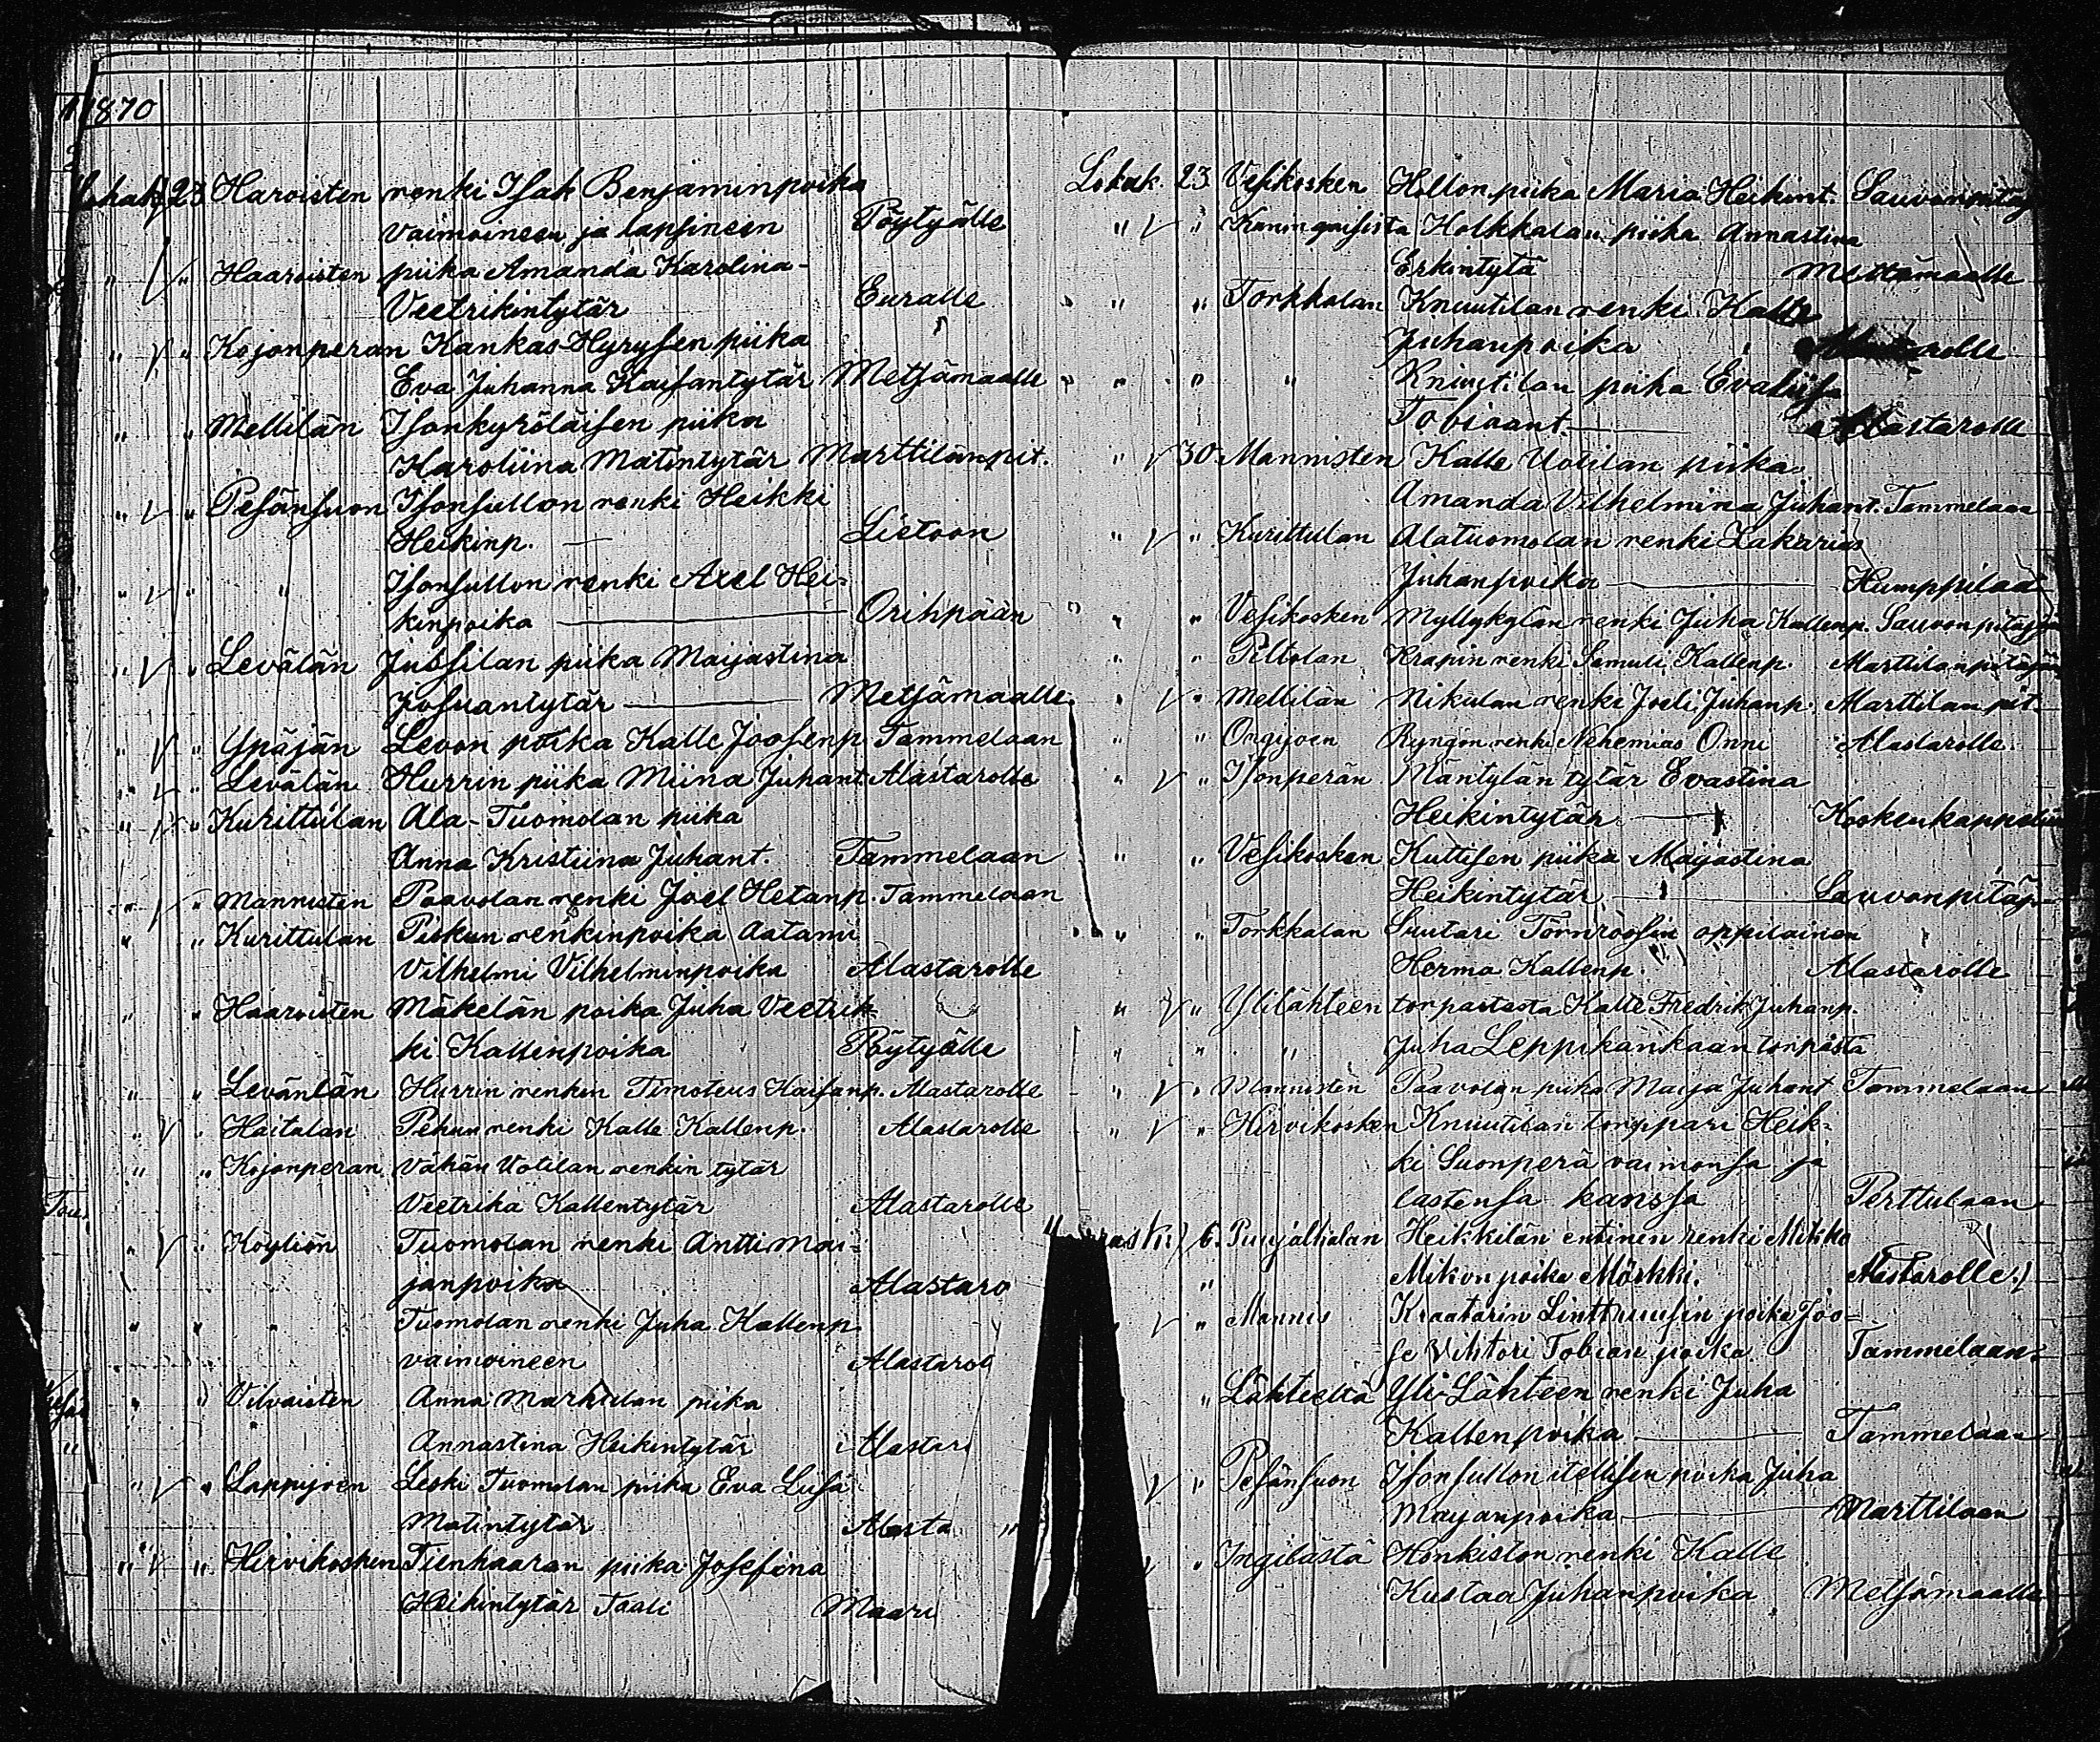 1870
Lokak. 23 Haroisten renki Isak Benjaminpoika
vaimoineen ja lapsineen Pöytyälle
" " Haaroisten piika Amanda Karolina-
Veetrikintytär Euralle
" " Kojonperan Kankas-Hyrysen piika
Eva Juhanna Kaisantytär Metsämaalle
" " Mellilän Isonkyröläisen piika
Karoliina Matintytär Marttilan pit.
" " Pesänsuon Isonsullon renki Heikki
Heikinp. Lietoon
" " " Isonsullon renki Axel Hei-
kinpoika Orihpään
" " Levälän Jussilan piika Maijastina
Josuantytär Metsämaalle
" " Ypäjän Levon poika Kalle Joosenp Tammelaan
" " Levälän Hurrin piika Miina Juhant. Alastarolle
" " Kurittulan Ala-Tuomolan piika
Anna Kristiina Juhant. Tammelaan
" " Mannisten Paavolan renki Joel Hetanp. Tammelaan
" " Kurittulan Piskun renkinpoika Aatami
Vilhelmi Vilhelminpoika Alastarolle
" " Haaroisten Mäkelän poika Juha Veetrik-
ki Kallenpoika Pöytyälle
" " Leväntän Hurrin renkin Timoteus Kaisanp. Alastarolle
" " Haitalan Pehun renki Kalle Kallenp. Alastarolle
" " Kojonperan Vähän Uotilan renkin tytär
Veetrika Kallentytär Alastarolle
" " Köyliön Tuomolan renki Antti Mai-
janpoika Alastaro
" " " Tuomolan renki Juha Kallenp
vaimoineen Alastarol
" " Vilvaisten Anna Markulan piika
Annastina Heikintytär Alastar
" " Loppijoen Leski Tuomolan piika Eva Liisa
Matintytär Alasta
" " Hirvikosken Tienhaaran piika Josefina
Heikintytär Taali Maari
Lokak. 23 Vesikosken Hollon piika Maria Heikint. Sauvonpitäj
" " Kaningaisista Holkkalan piika Annastina
Erkintytä Mettämaalle
" " Torkkalan Knuutilan renki Kalle
Juhanpoika Alastarolle
" " " Knuutilan piika Evaliisa
Tobiaant. Alastarolle
" 30 Mannisten Kalle Uotilan piika
Amanda Vilhelmina Juhant. Tammelaan
" " Kurittulan Alatuomolan renki Zakarias
Juhanpoika Humppilaa
" " Vesikosken Myllykylän renki Juha Kallenp. Sauvon pitäjä
" " Piltolan Krapin renki Samuli Kallenp. Marttilanpitäjä
" " Mellilän Nikulan renki Joeli Juhanp. Marttilan pit.
" " Orgijoen Ryngön renki Nehemias Onni Alastarolle.
" " Isonperän Mäntylän tytär Evastina
Heikintytär Koskenkappeliin
" " Vesikosken Kuttisen piika Maijastina
Heikintytär Sauvonpitäj
" " Torkkalan Suutari Törnroosin oppilainen
Herma Kallenp. Alastarolle
" " Ylilähteen torpastesta Kalle Fredrik Juhanp.
" " " Juha Leppikankaan torpasta
" " Mannisten Paavolan piika Maija Juhant Tammelaan
" " Hirvikosken Knuutilan torppari Heik-
ki Suonperä vaimonsa ja
lastensa kanssa Perttulaan
6. Puujalkalan Heikkilän entinen renki Mikko
" Mikon poika Mörkki. Alastarolle.
" Mannis Kraatarin Linttruusin poika Joo-
se Vihtori Tobian poika Tammelaan.
" Lähteeltä Yli-Lähteen renki Juha
Kallenpoika Tammelaan
" Pesänsuon Isonsullon itellisen poika Juha
Maijanpoika Marttilaan
" Ingilästä Honkiston renki Kalle
Kustaa Juhanpoika Metsämaalle